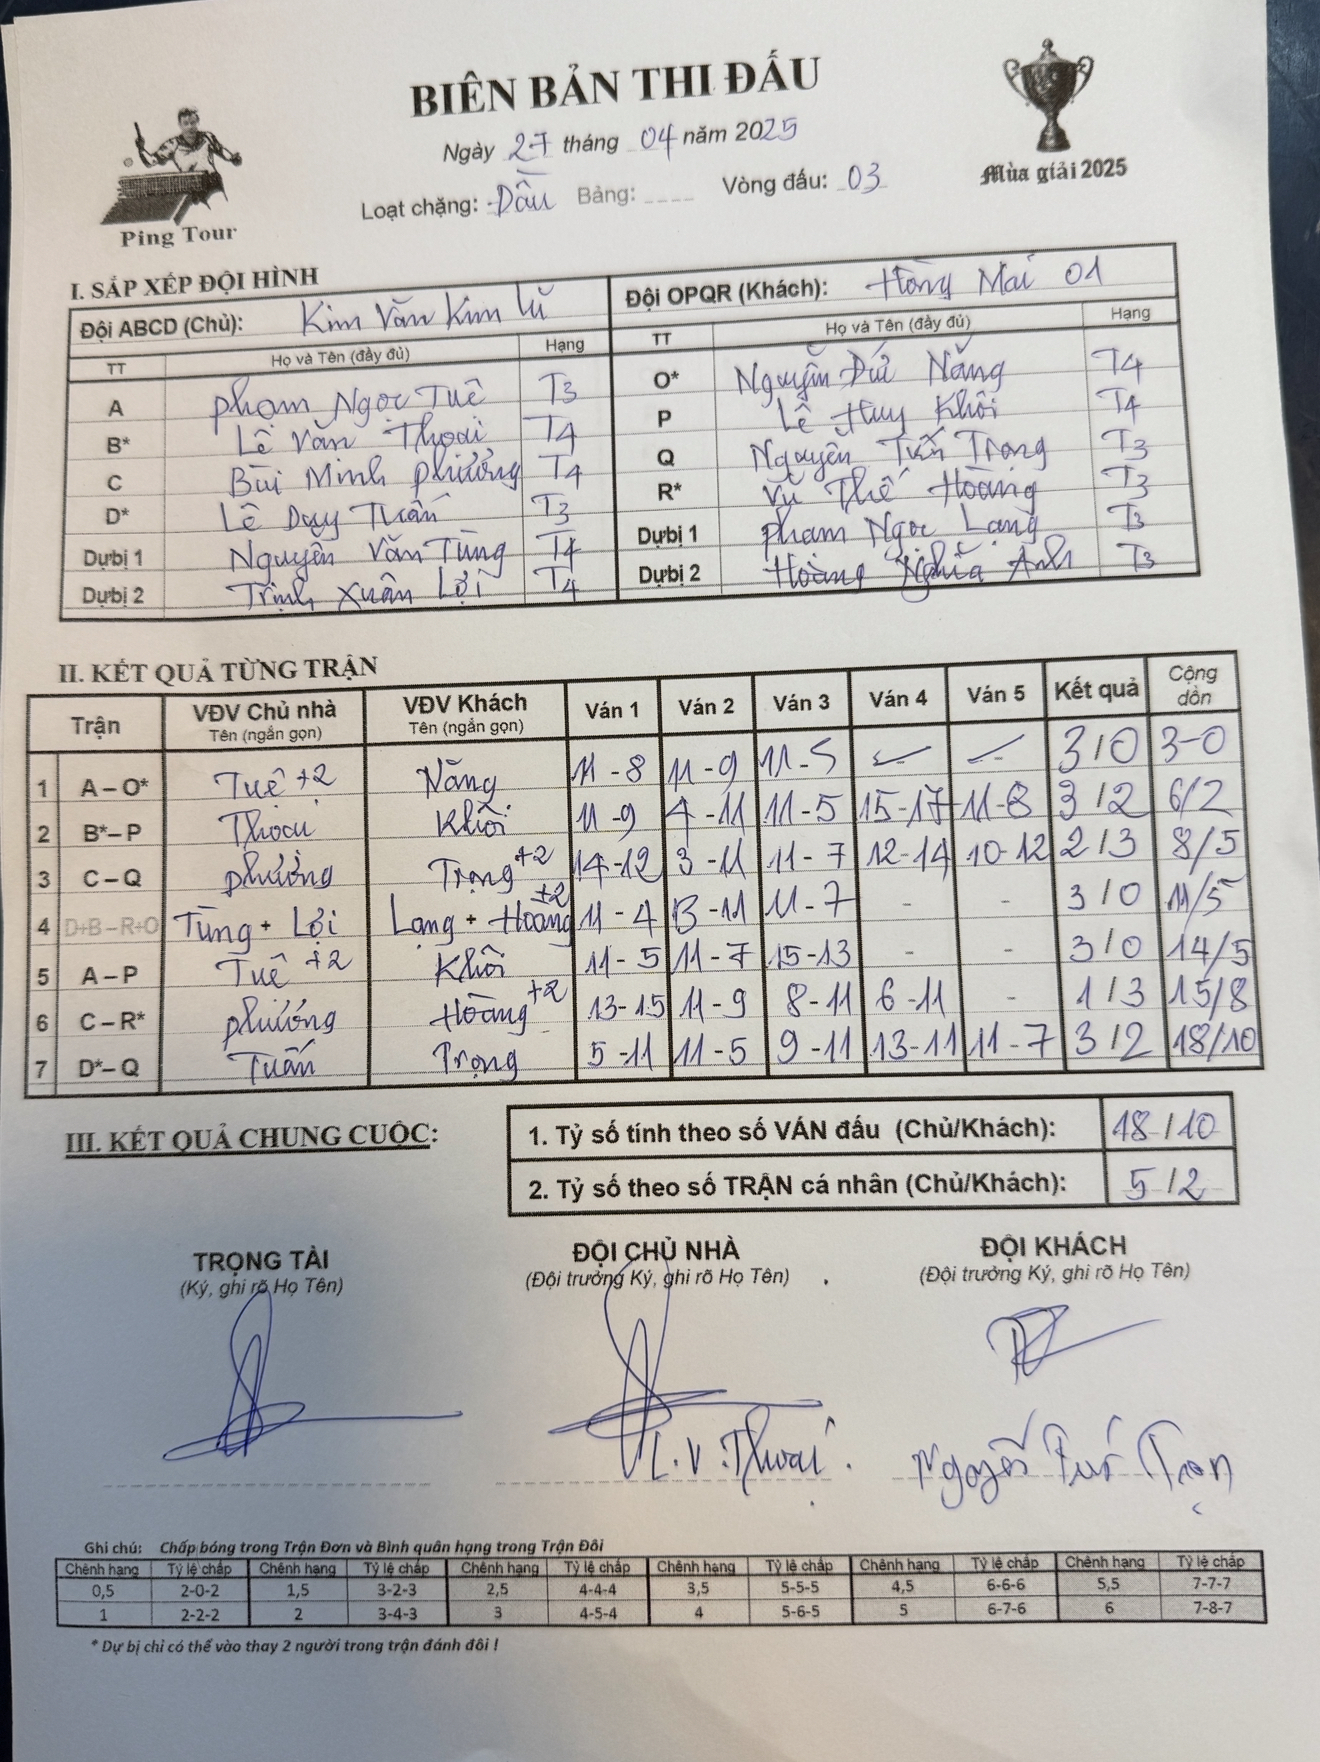 BIÊN BẢN THI ĐẤU
Ngày 27 tháng 04 năm 2025
Loạt chặng: Dầu Bảng: ____ Vòng đấu: 03
Ping Tour
Mùa giải 2025
I. SẮP XẾP ĐỘI HÌNH
Đội ABCD (Chủ): Kim Văn Kim Lũ Đội OPQR (Khách): Hồng Mai 01
TT Họ và Tên (đầy đủ) Hạng TT Họ và Tên (đầy đủ) Hạng
A Phạm Ngọc Tuê T3 O* Nguyễn Đứ Năng T4
B* Lê Văn Thoại T4 P Lê Huy Khôi T4
C Bùi Minh Phương T4 Q Nguyễn Tuấn Trọng T3
D* Lê Duy Tuấn T3 R* Vũ Thế Hoàng T3
Dự bị 1 Nguyễn Văn Tùng T4 Dự bị 1 Phạm Ngọc Lạng T3
Dự bị 2 Trịnh Xuân Lợi T4 Dự bị 2 Hoàng Nghĩa Anh T3
II. KẾT QUẢ TỪNG TRẬN
Trận VĐV Chủ nhà Tên (ngắn gọn) VĐV Khách Tên (ngắn gọn) Ván 1 Ván 2 Ván 3 Ván 4 Ván 5 Kết quả Cộng dồn
1 A – O* Tuê +2 Năng 11-8 11-9 11-5 - - 3/0 3-0
2 B* – P Thoại Khôi 11-9 4-11 11-5 15-17 11-8 3/2 6/2
3 C – Q Phương Trọng +2 14-12 3-11 11-7 12-14 10-12 2/3 8/5
4 D+B – R+O Tùng + Lợi Lạng + Hoàng +2 11-4 13-11 11-7 - - 3/0 11/5
5 A – P Tuê +2 Khôi 11-5 11-7 15-13 - - 3/0 14/5
6 C – R* Phương Hoàng +2 13-15 11-9 8-11 6-11 - 1/3 15/8
7 D* – Q Tuấn Trọng 5-11 11-5 9-11 13-11 11-7 3/2 18/10
III. KẾT QUẢ CHUNG CUỘC:
1. Tỷ số tính theo số VÁN đấu (Chủ/Khách): 18/10
2. Tỷ số theo số TRẬN cá nhân (Chủ/Khách): 5/2
TRỌNG TÀI ĐỘI CHỦ NHÀ ĐỘI KHÁCH
(Ký, ghi rõ Họ Tên) (Đội trưởng Ký, ghi rõ Họ Tên) (Đội trưởng Ký, ghi rõ Họ Tên)
L.V.Thoại. Nguyễn Tuấn Trọng
Ghi chú: Chấp bóng trong Trận Đơn và Bình quân hạng trong Trận Đôi
Chênh hạng Tỷ lệ chấp Chênh hạng Tỷ lệ chấp Chênh hạng Tỷ lệ chấp Chênh hạng Tỷ lệ chấp Chênh hạng Tỷ lệ chấp Chênh hạng Tỷ lệ chấp
0,5 2-0-2 1,5 3-2-3 2,5 4-4-4 3,5 5-5-5 4,5 6-6-6 5,5 7-7-7
1 2-2-2 2 3-4-3 3 4-5-4 4 5-6-5 5 6-7-6 6 7-8-7
* Dự bị chỉ có thể vào thay 2 người trong trận đánh đôi !